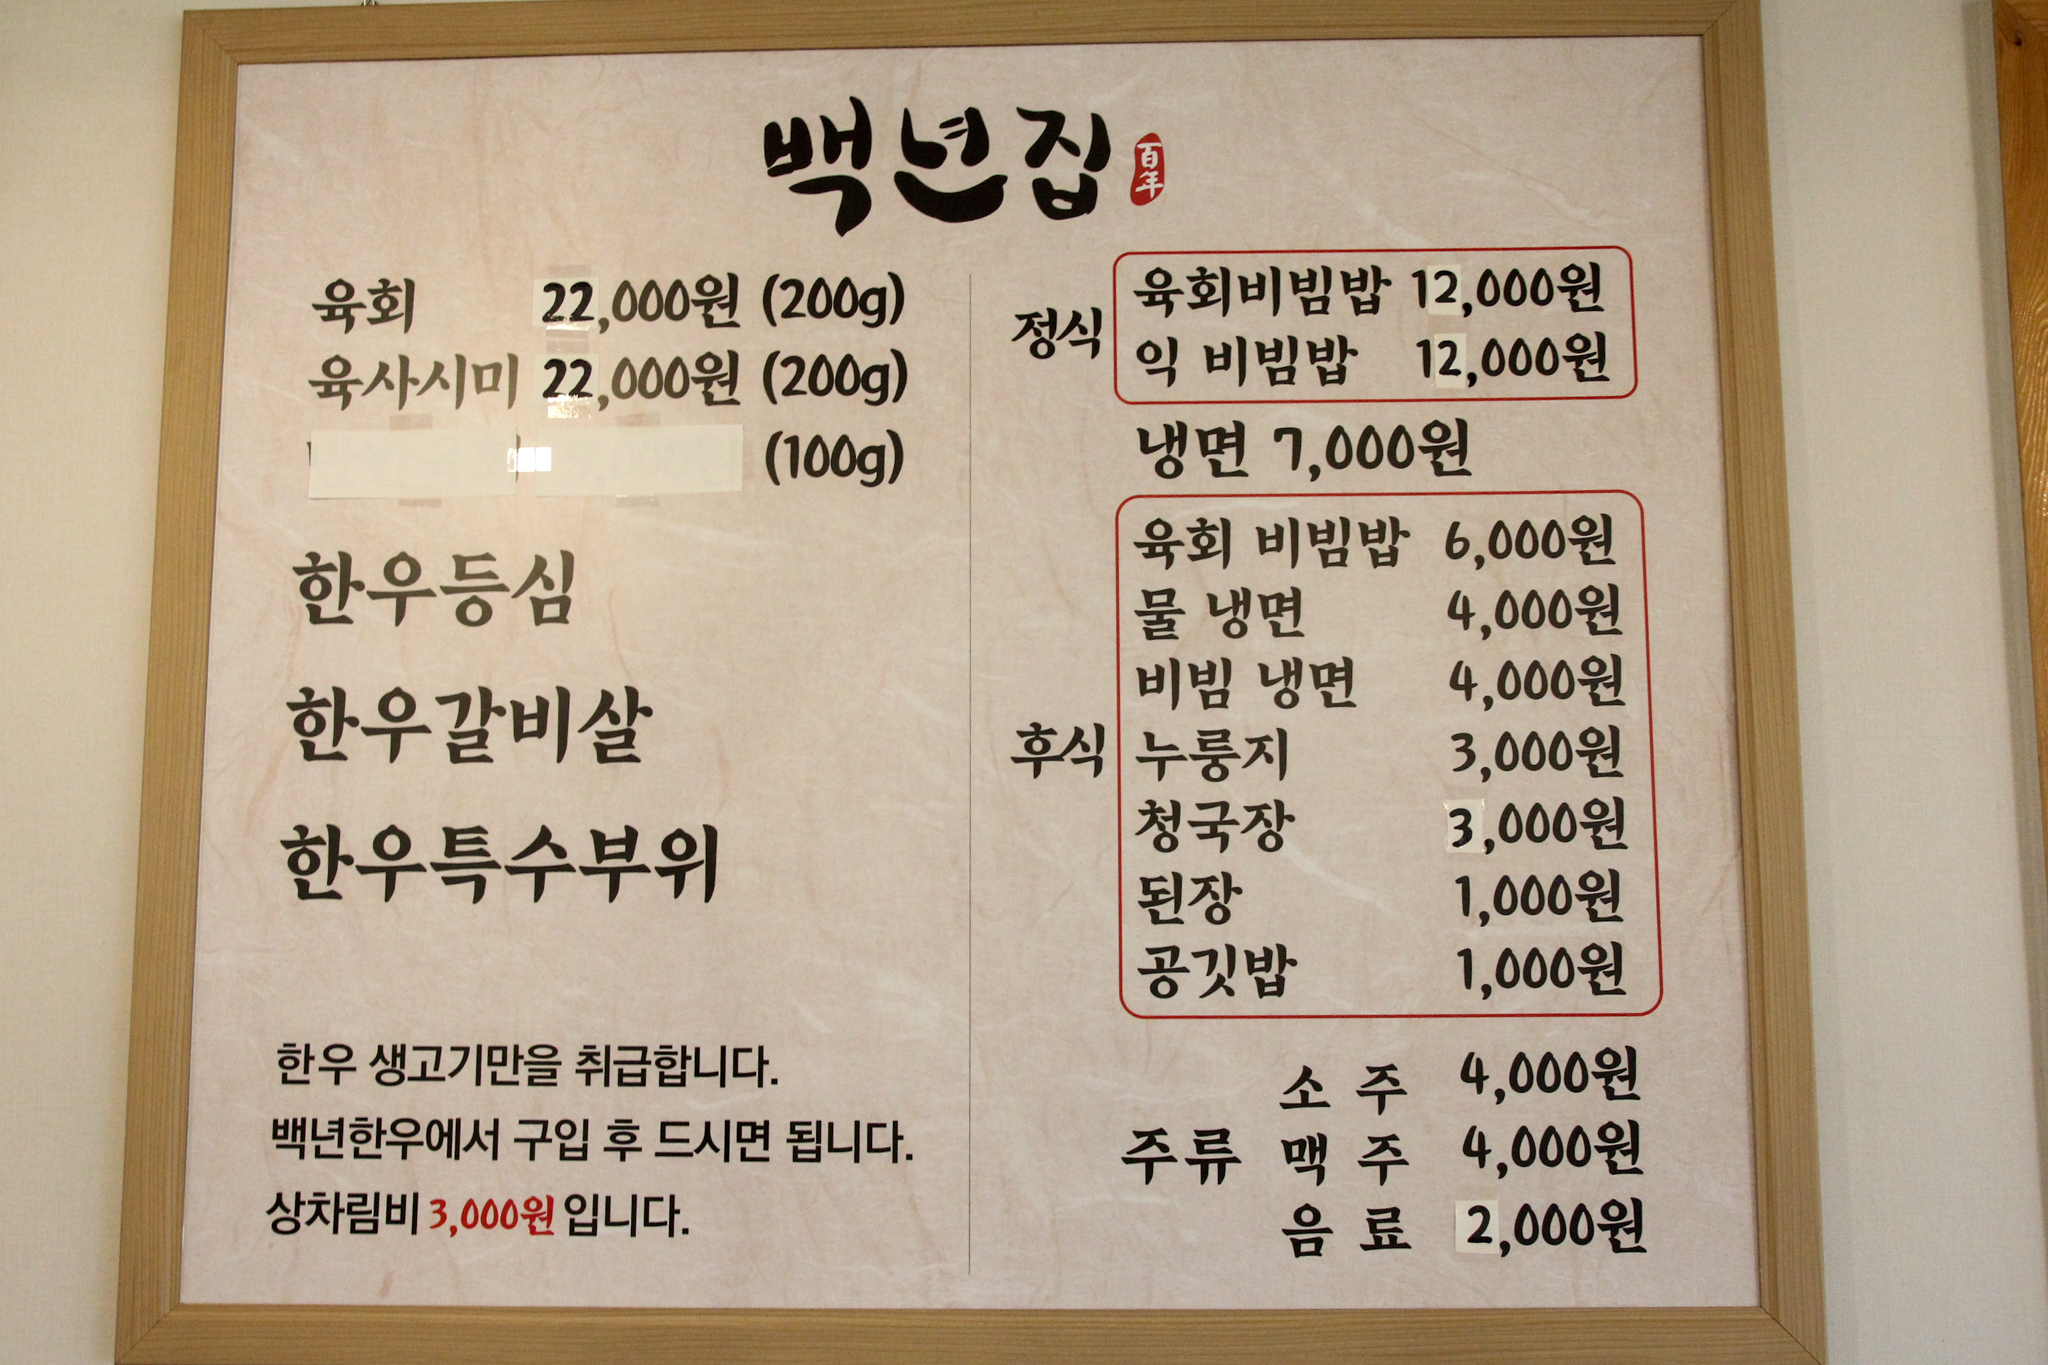 백년집 百年
육회 22,000원 (200g)
육사시미 22,000원 (200g)
(100g)
한우등심
한우갈비살
한우특수부위
한우 생고기만을 취급합니다.
백년한우에서 구입 후 드시면 됩니다.
상차림비 3,000원 입니다.
정식
육회비빔밥 12,000원
익 비빔밥 12,000원
냉면 7,000원
후식
육회 비빔밥 6,000원
물 냉면 4,000원
비빔 냉면 4,000원
누룽지 3,000원
청국장 3,000원
된장 1,000원
공깃밥 1,000원
주류
소 주 4,000원
맥 주 4,000원
음 료 2,000원